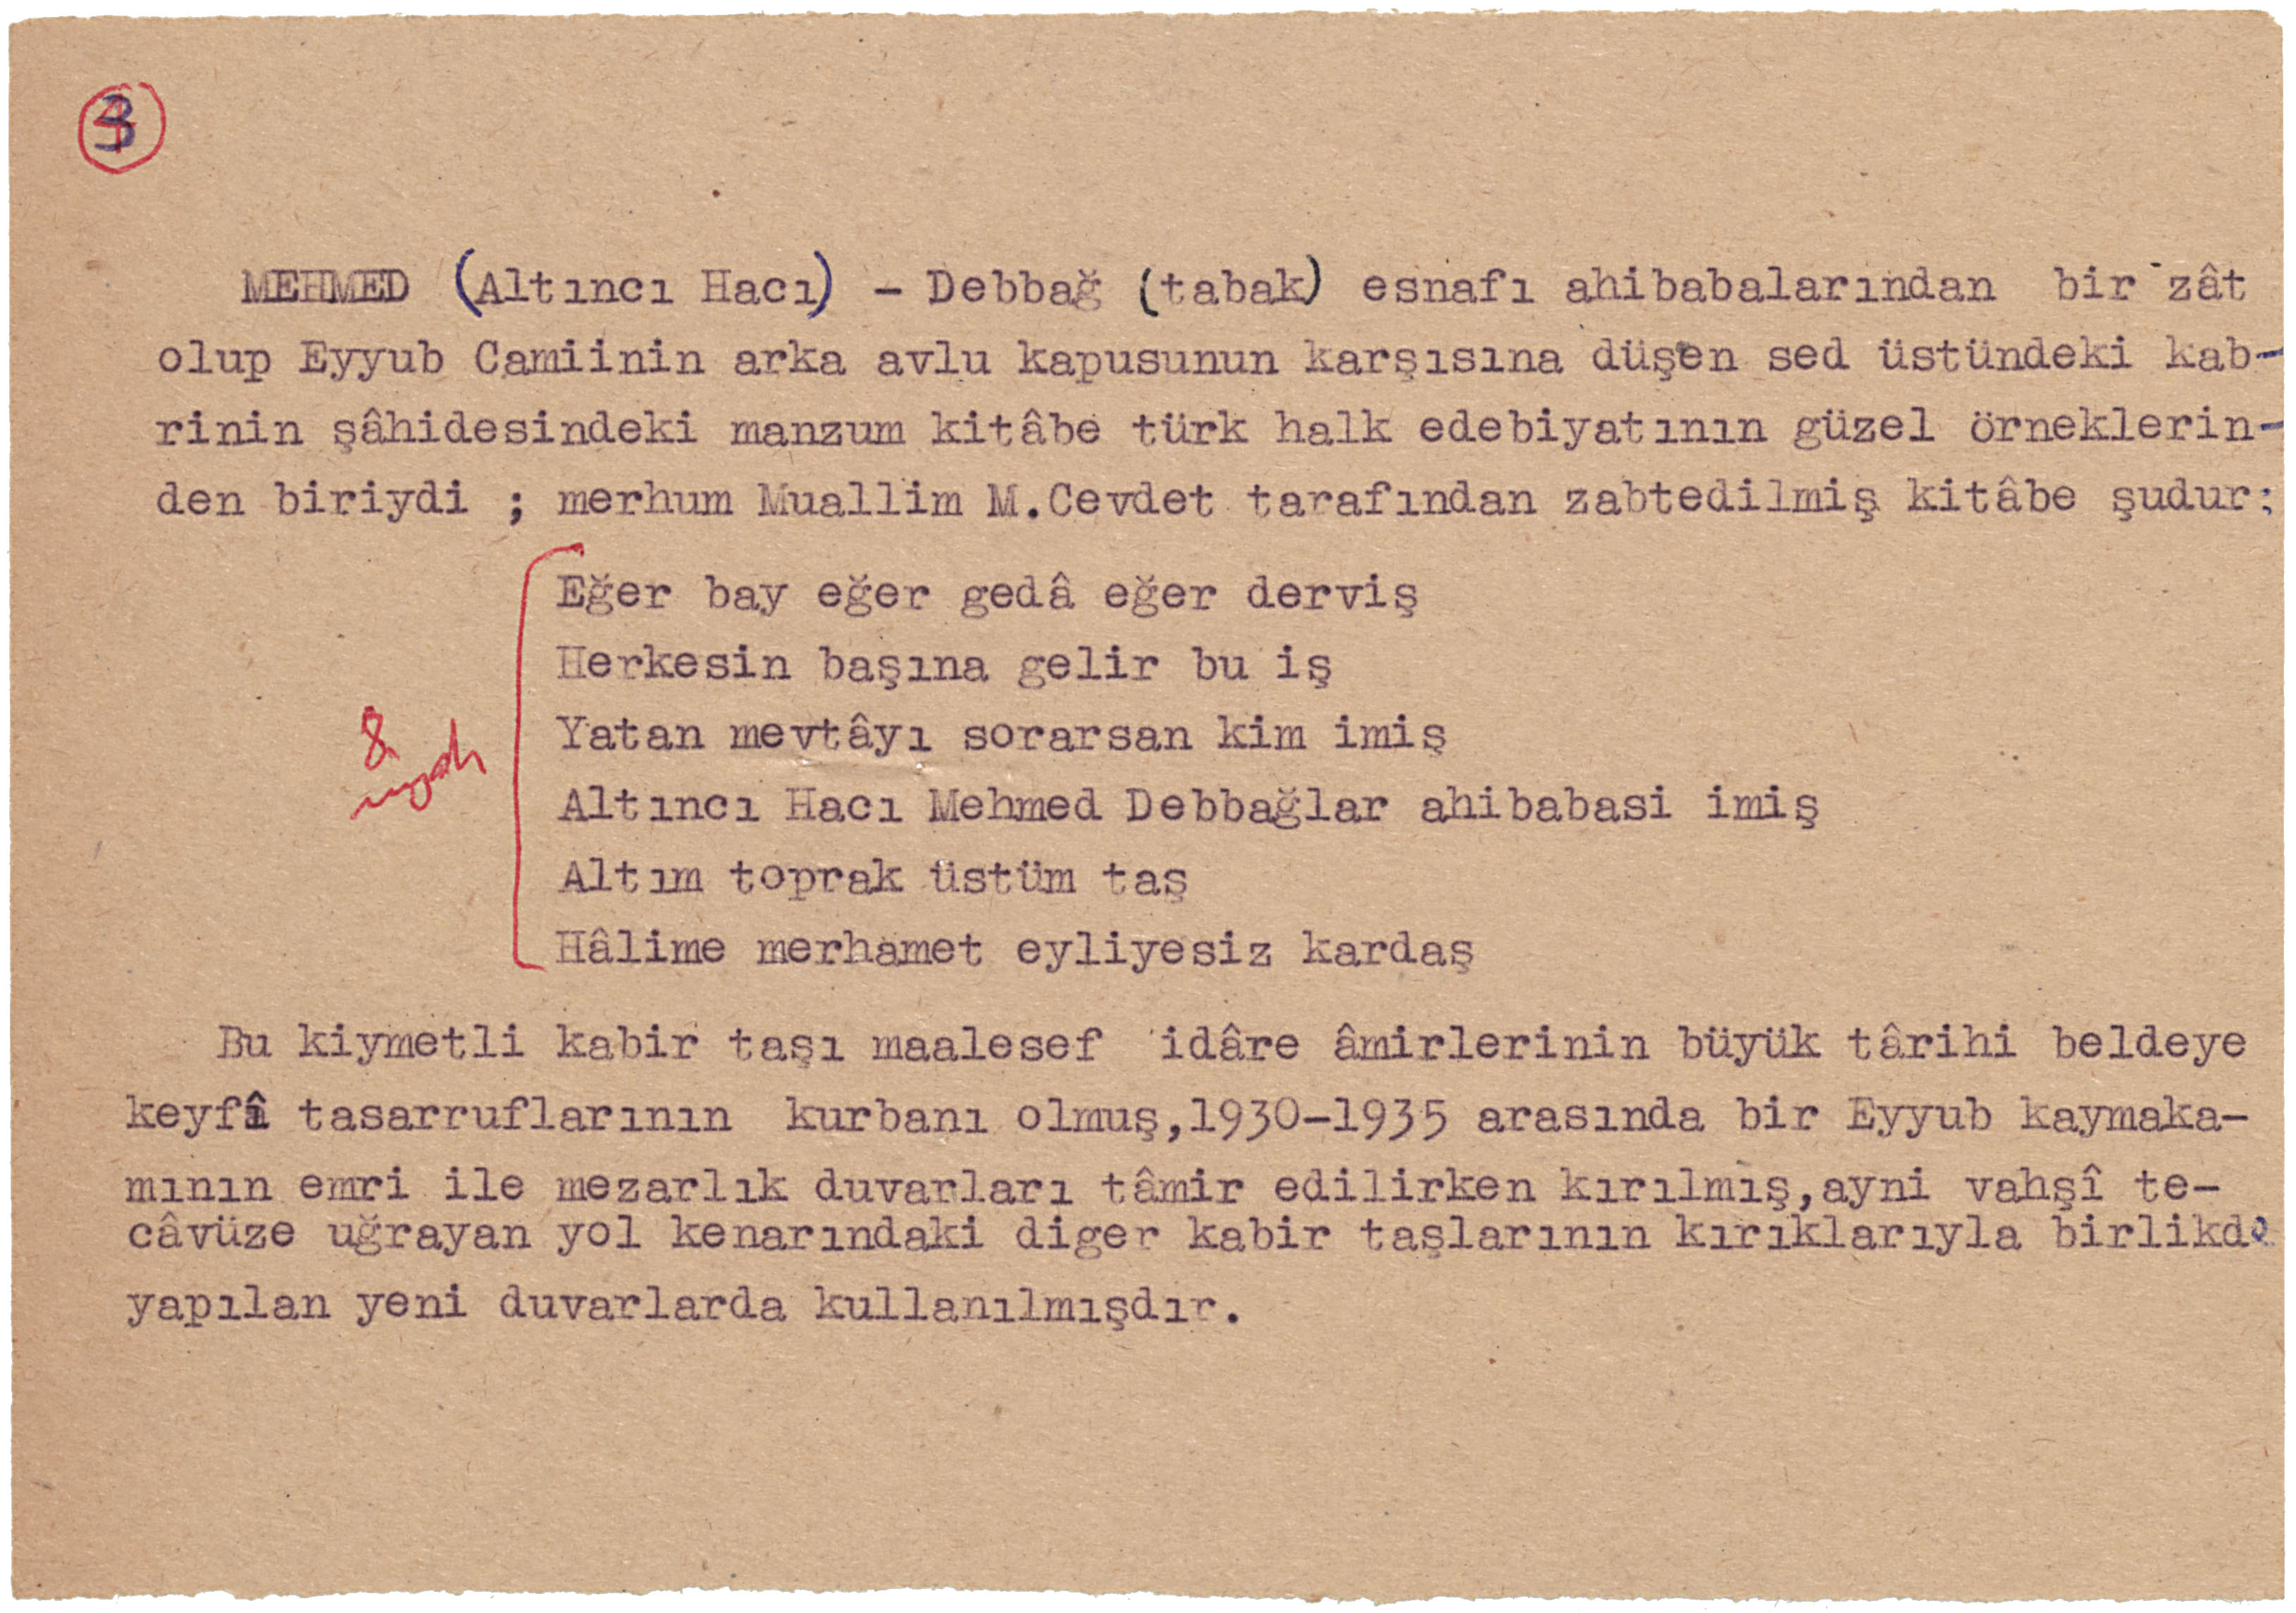 3
MEHMED (Altıncı Hacı) - Debbağ (tabak) esnafı ahibabalarından bir zât
olup Eyyub Camiinin arka avlu kapusunun karşısına düşen sed üstündeki kab-
rinin şâhidesindeki manzum kitâbe türk halk edebiyatının güzel örneklerin-
den biriydi ; merhum Muallim M.Cevdet tarafından zabtedilmiş kitâbe şudur:
Eğer bay eğer gedâ eğer derviş
Herkesin başına gelir bu iş
8
Yatan mevtâyı sorarsan kim imiş
Altıncı Hacı Mehmed Debbağlar ahibabasi imiş
Altım toprak üstüm taş
Hâlime merhamet eyliyesiz kardaş
Bu kiymetli kabir taşı maalesef idâre âmirlerinin büyük târihi beldeye
keyfî tasarruflarının kurbanı olmuş,1930-1935 arasında bir Eyyub kaymaka-
mının emri ile mezarlık duvarları tâmir edilirken kırılmış,ayni vahşî te-
câvüze uğrayan yol kenarındaki diger kabir taşlarının kırıklarıyla birlikde
yapılan yeni duvarlarda kullanılmışdır.